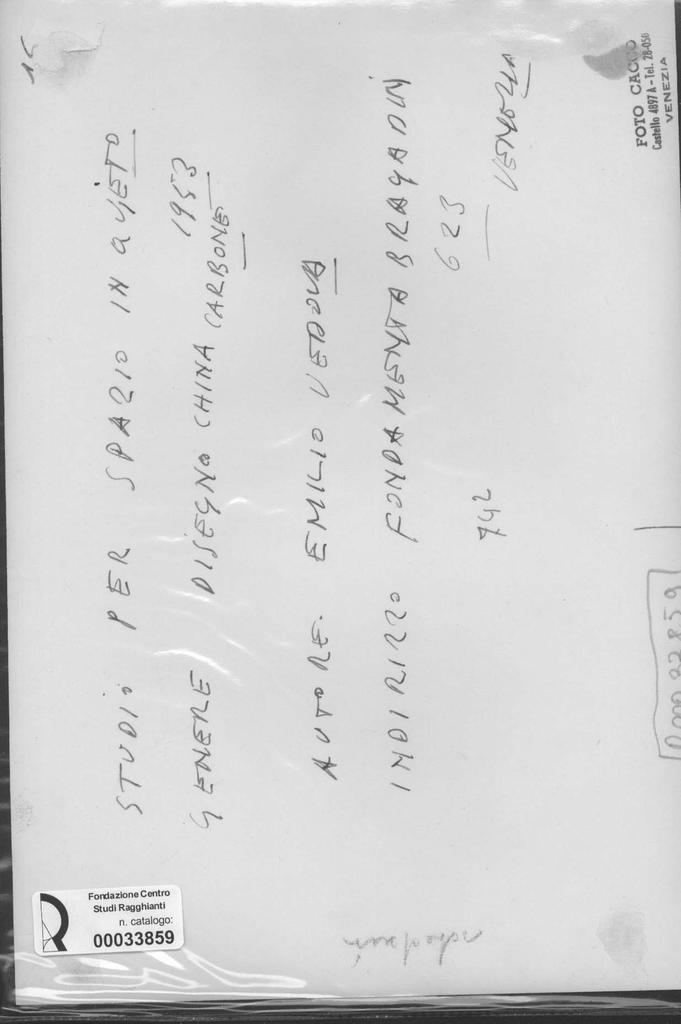 15
STUDIO PER SPAZIO IN QUIETO
1953
GENERE DISEGNO CHINA CARBONE
AUTORE. EMILIO VEDOVA
INDIRIZZO FONDAMENTA BRAGADIN
623
VENEZIA
742
FOTO CACCO
Castello 4897 A - Tel. 28-056
VENEZIA
Fondazione Centro
Studi Ragghianti
n. catalogo:
00033859